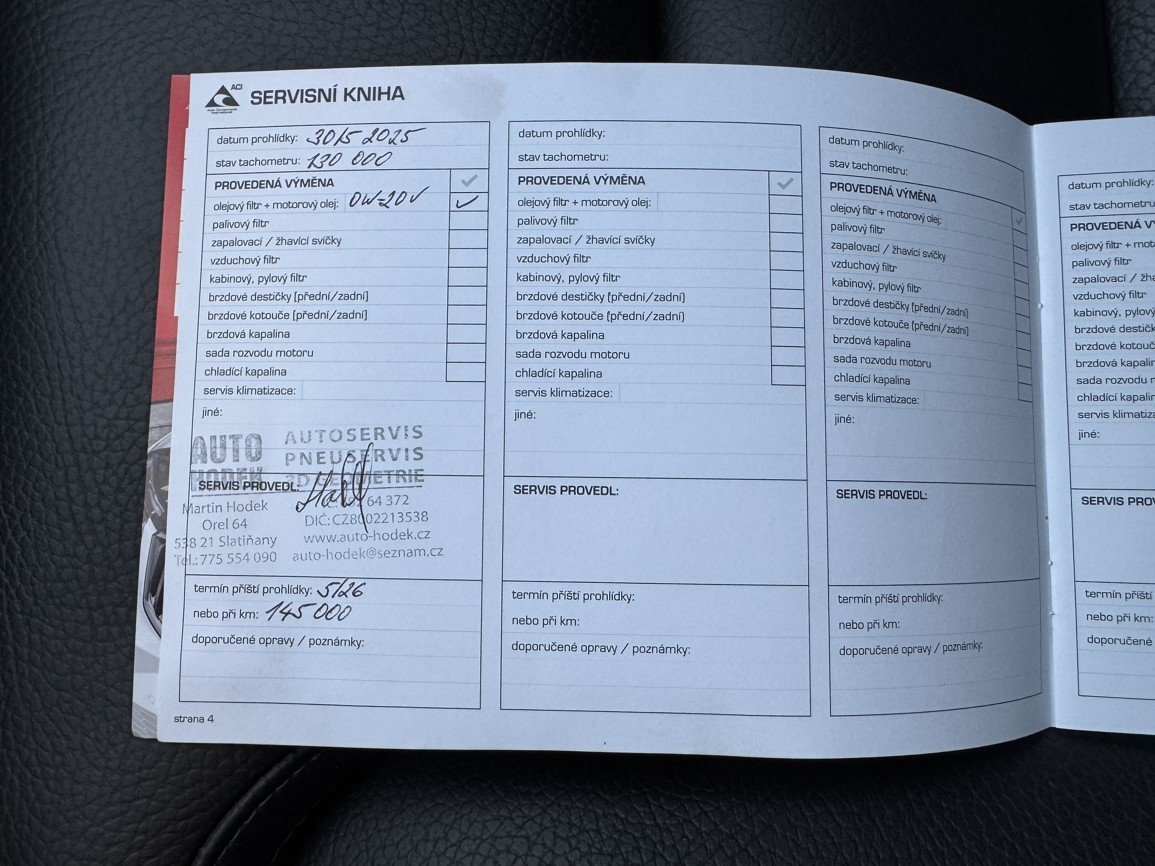 ACI
Auto Components
International
SERVISNÍ KNIHA
datum prohlídky: 30/5 2025
stav tachometru: 130 000
PROVEDENÁ VÝMĚNA ✓
olejový filtr + motorový olej: 0W-20V ✓
palivový filtr
zapalovací / žhavící svíčky
vzduchový filtr
kabinový, pylový filtr
brzdové destičky (přední/zadní)
brzdové kotouče (přední/zadní)
brzdová kapalina
sada rozvodu motoru
chladící kapalina
servis klimatizace:
jiné:
AUTO
HODEK
AUTOSERVIS
PNEUSERVIS
3D GEOMETRIE
SERVIS PROVEDL:
Martin Hodek
Orel 64
538 21 Slatiňany
Tel.: 775 554 090
64 372
DIČ: CZ8002213538
www.auto-hodek.cz
auto-hodek@seznam.cz
termín příští prohlídky: 5/26
nebo při km: 145 000
doporučené opravy / poznámky:
strana 4
datum prohlídky:
stav tachometru:
PROVEDENÁ VÝMĚNA ✓
olejový filtr + motorový olej:
palivový filtr
zapalovací / žhavící svíčky
vzduchový filtr
kabinový, pylový filtr
brzdové destičky (přední/zadní)
brzdové kotouče (přední/zadní)
brzdová kapalina
sada rozvodu motoru
chladící kapalina
servis klimatizace:
jiné:
SERVIS PROVEDL:
termín příští prohlídky:
nebo při km:
doporučené opravy / poznámky:
datum prohlídky:
stav tachometru:
PROVEDENÁ VÝMĚNA
olejový filtr + motorový olej: ✓
palivový filtr
zapalovací / žhavící svíčky
vzduchový filtr
kabinový, pylový filtr
brzdové destičky (přední/zadní)
brzdové kotouče (přední/zadní)
brzdová kapalina
sada rozvodu motoru
chladící kapalina
servis klimatizace:
jiné:
SERVIS PROVEDL:
termín příští prohlídky:
nebo při km:
doporučené opravy / poznámky:
datum prohlídky:
stav tachometru
PROVEDENÁ V
olejový filtr + mot
palivový filtr
zapalovací / žha
vzduchový filtr
kabinový, pylový
brzdové destičk
brzdové kotouč
brzdová kapalin
sada rozvodu m
chladící kapalin
servis klimatiza
jiné:
SERVIS PRO
termín příští
nebo při km:
doporučené